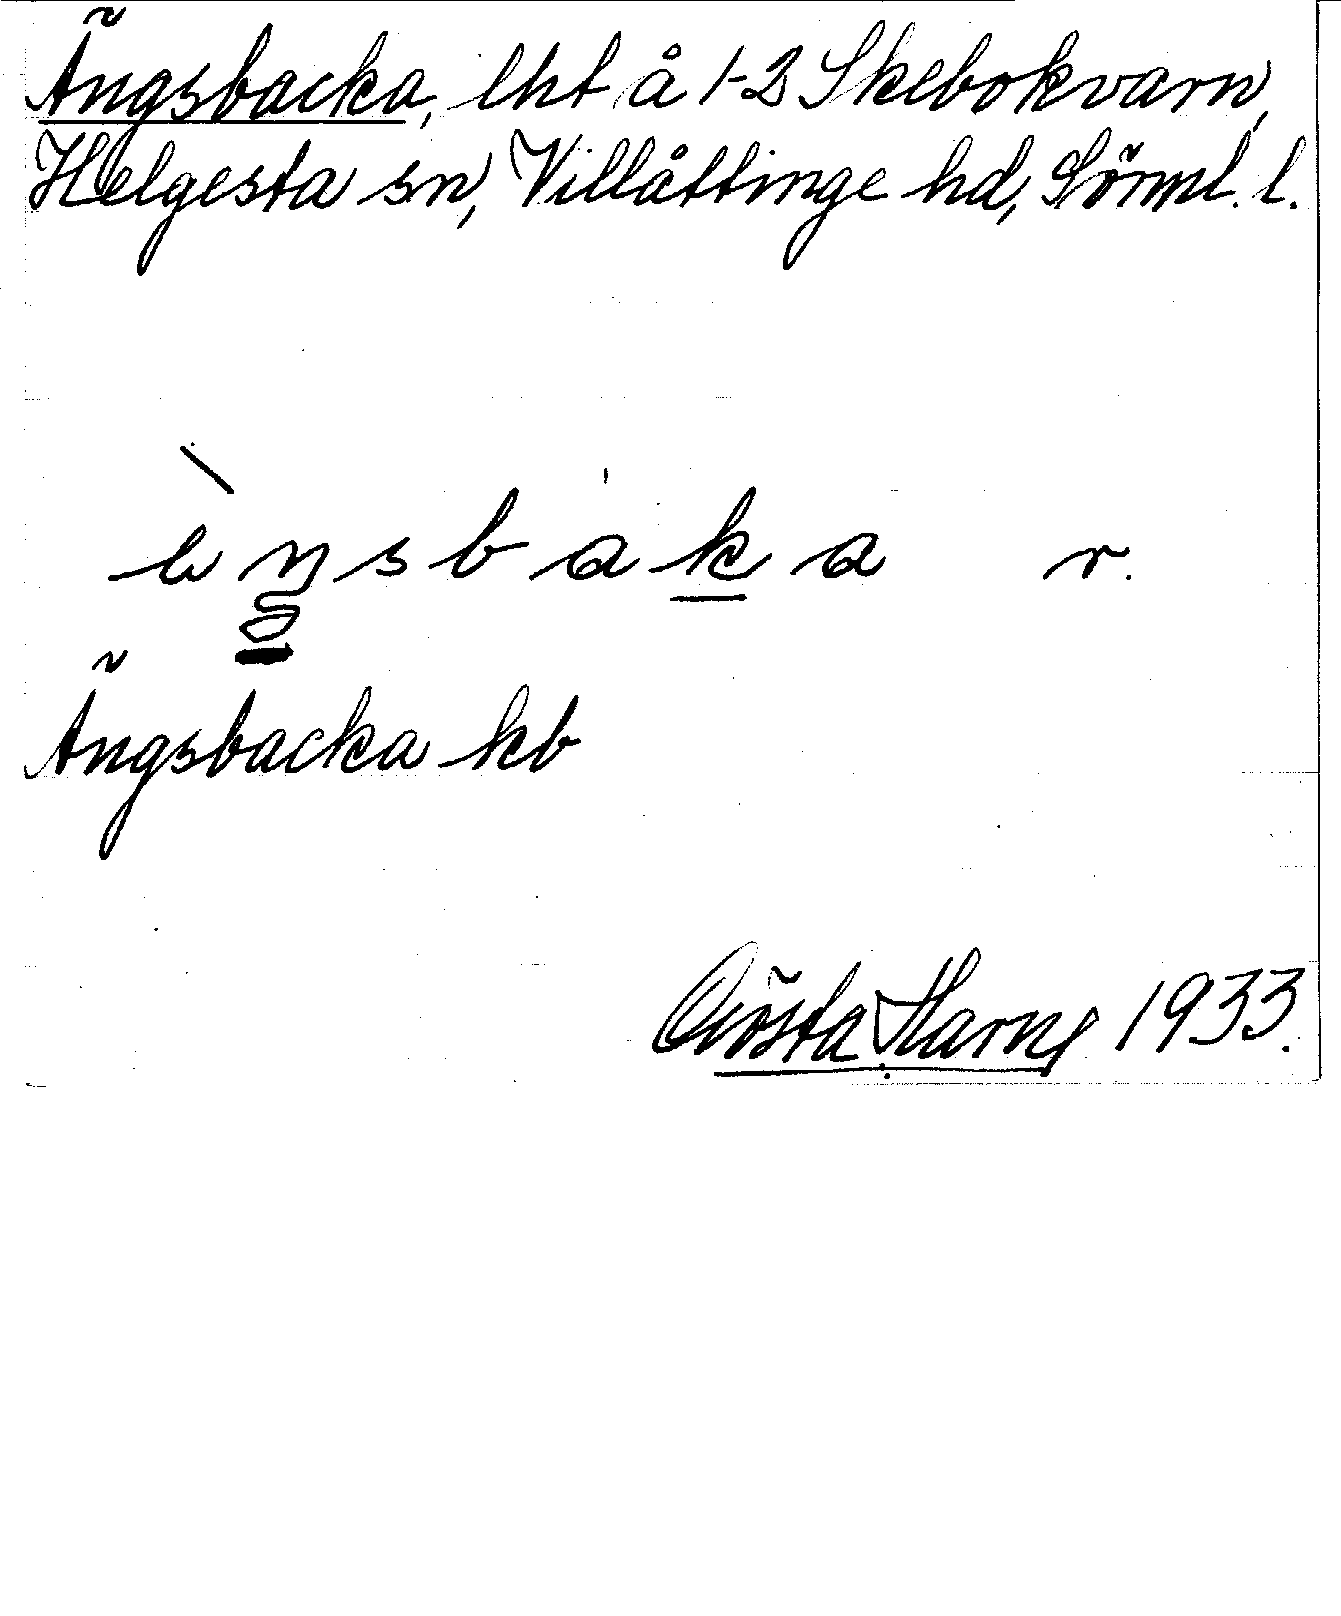 Ängsbacka, lht å 1-2 Skebokvarn,
Helgesta sn, Villåttinge hd, Sörml. l.
è ŋ s b a k a r.
Ängsbacka kb
Gösta Harne 1933.